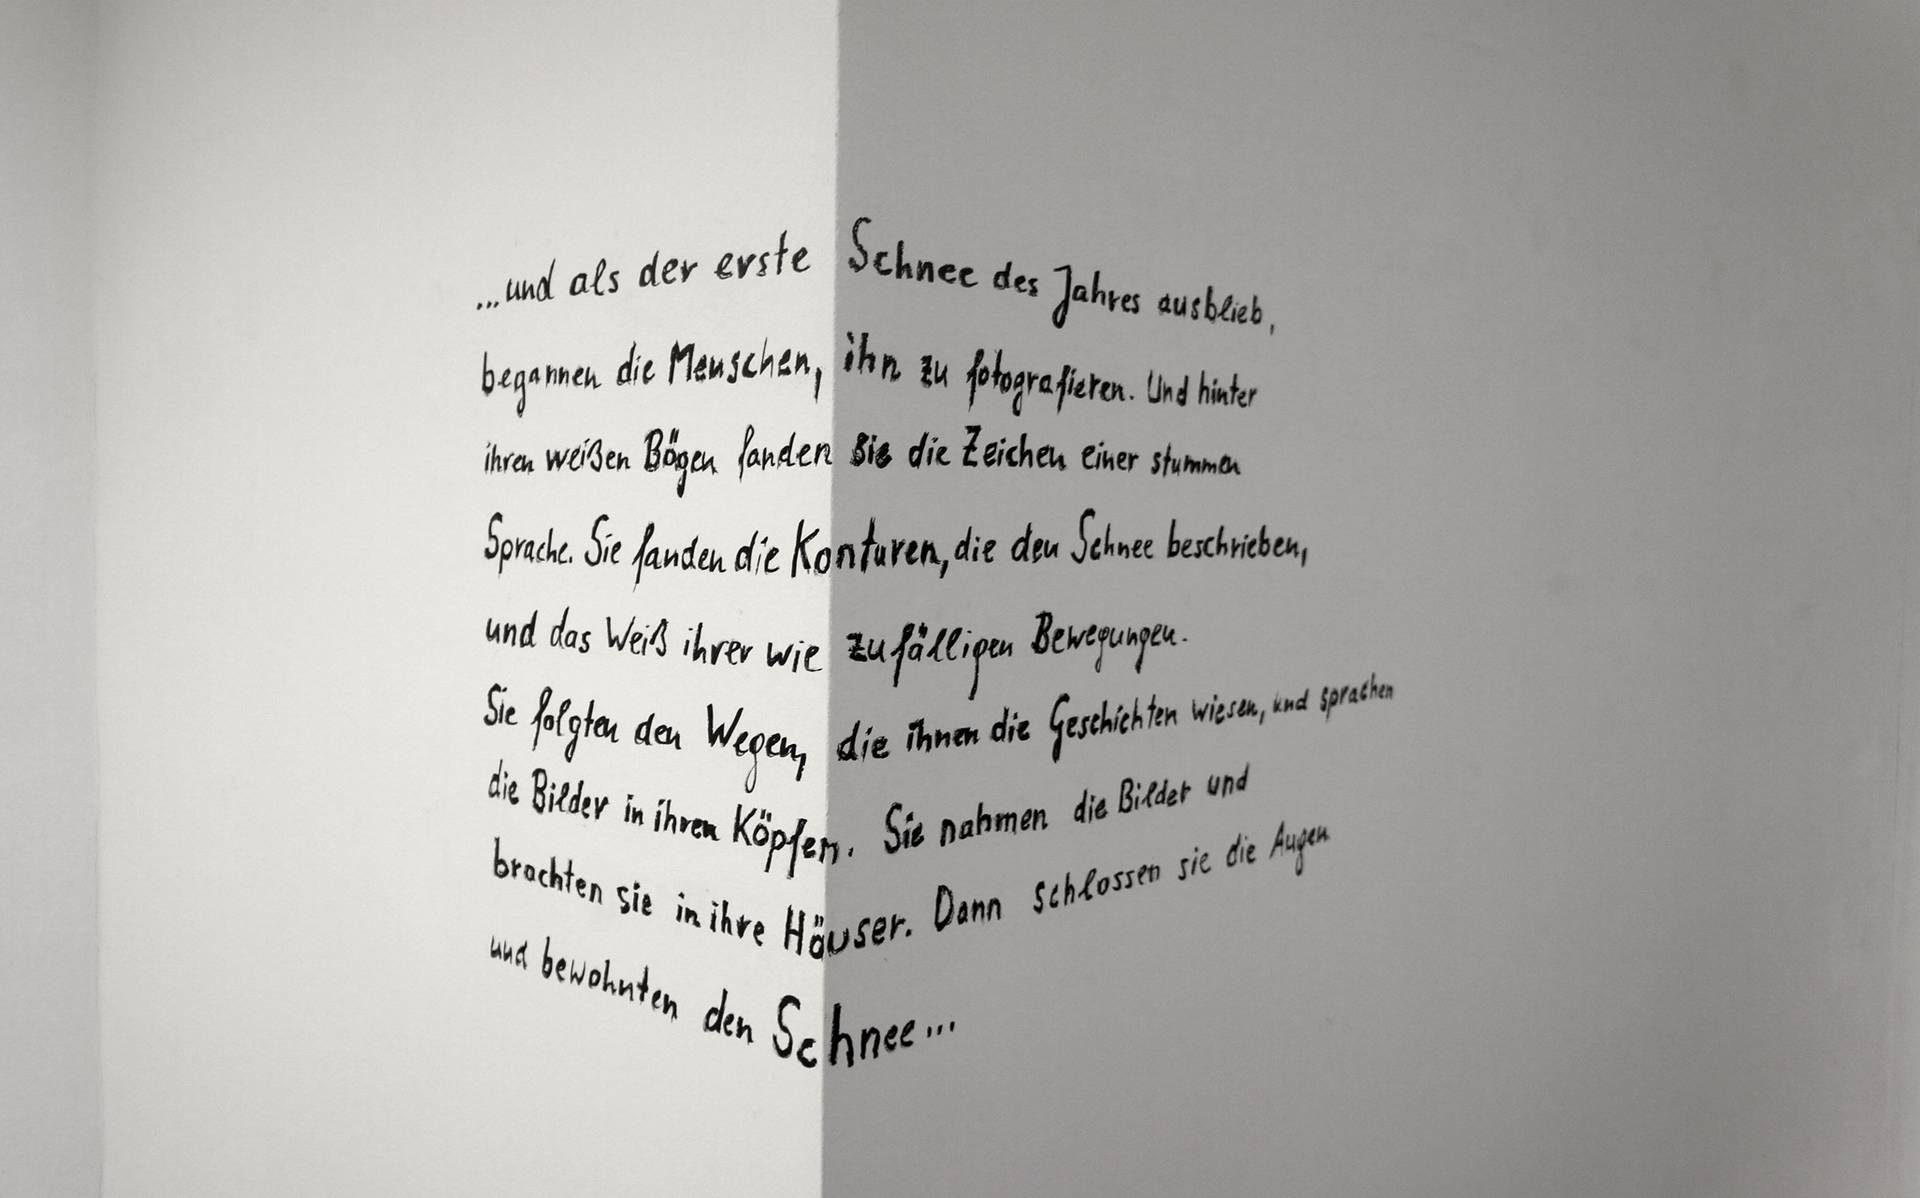 ...und als der erste Schnee des Jahres ausblieb,
begannen die Menschen, ihn zu fotografieren. Und hinter
ihren weißen Bögen fanden sie die Zeichen einer stummen
Sprache. Sie fanden die Konturen, die den Schnee beschrieben,
und das Weiß ihrer wie zufälligen Bewegungen.
Sie folgten den Wegen, die ihnen die Geschichten wiesen, und sprachen
die Bilder in ihren Köpfen. Sie nahmen die Bilder und
brachten sie in ihre Häuser. Dann schlossen sie die Augen
und bewohnten den Schnee...